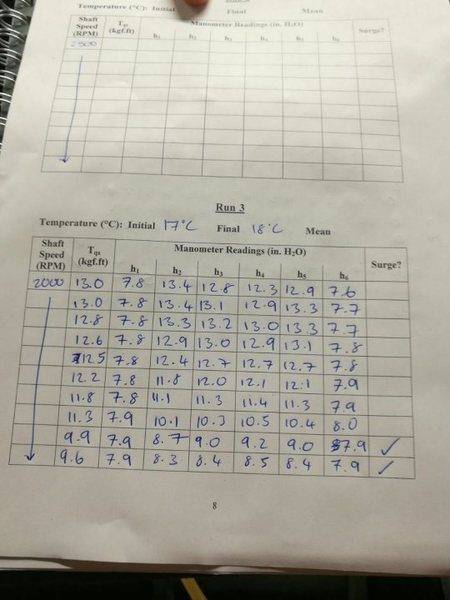 Temperature (°C): Initial Final Mean
Shaft Speed (RPM) (kgf.ft) Manometer Readings (in. H₂O) Surge?
h₁ h₂ h₃ h₄ h₅ h₆
2500
Run 3
Temperature (°C): Initial 17°C Final 18°C Mean
Shaft Speed (RPM) (kgf.ft) Manometer Readings (in. H₂O) Surge?
h₁ h₂ h₃ h₄ h₅ h₆
2000 13.0 7.8 13.4 12.8 12.3 12.9 7.6
13.0 7.8 13.4 13.1 12.9 13.3 7.7
12.8 7.8 13.3 13.2 13.0 13.3 7.7
12.6 7.8 12.9 13.0 12.9 13.1 7.8
12.5 7.8 12.4 12.7 12.7 12.7 7.8
12.2 7.8 11.8 12.0 12.1 12.1 7.9
11.8 7.8 11.1 11.3 11.4 11.3 7.9
11.3 7.9 10.1 10.3 10.5 10.4 8.0
9.9 7.9 8.7 9.0 9.2 9.0 7.9 ✓
9.6 7.9 8.3 8.4 8.5 8.4 7.9 ✓
8